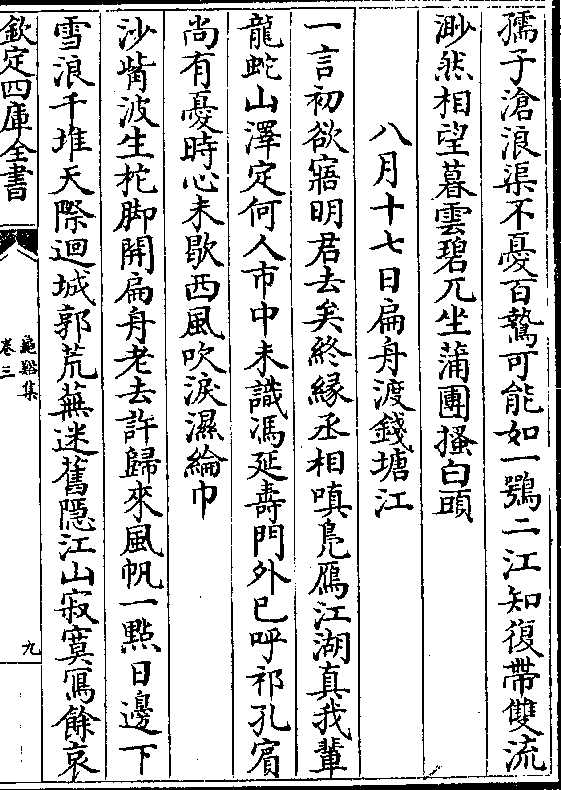 孺子滄浪渠不憂百鷙可能如一鶚二江知復帶雙流
渺然相望暮雲碧兀坐蒲團搔白頭
八月十七日扁舟渡錢塘江
一言初欲寤明君去矣終緣丞相嗔鳧鴈江湖真我輩
龍蛇山澤定何人市中未識馮延壽門外已呼祁孔賓
尚有憂時心未歇西風吹淚濕綸巾
沙觜波生柁脚開扁舟老去許歸來風帆一點日邊下
雪浪千堆天際迴城郭荒蕪迷舊隱江山寂寞寫餘哀
欽定四庫全書
龜谿集
卷三
九